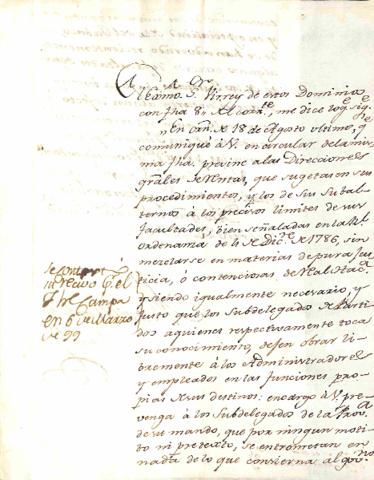 El Exmo. S. Virrey de estos Dominios
con fha 8 del corr.te, me dice lo q.e sig.e
En orn. de 18 de Agosto ultimo, q.e
comuniqué à V. en circular de la mis
ma fha, previne a las Direcciones
grales de Rentas, que sugetasen sus
procedimientos, y los de sus Subal-
ternos à los precisos limites de sus
facultades, bien señaladas en la Rl.
ordenanza de 4 de Dic.re de 1786, sin
mezclarse en materias de pura Jus-
ticia, ó contenciosas de Real Hac.da
y siendo igualmente necesario, y
justo que los Subdelegados de Parti-
dos aquienes respectivamente toca
su conocimiento, dejen obrar li-
bremente à los Administradores
y empleados en las funciones pro-
pias de sus destinos: encargo à V. pre-
venga à los Subdelegados de la Prov.a
de su mando, que por ningun moti-
vo ni pretexto, se entrometan en
nada de lo que concierna al gov.no
se contextó
recivo
en 6 de Marzo
de 99